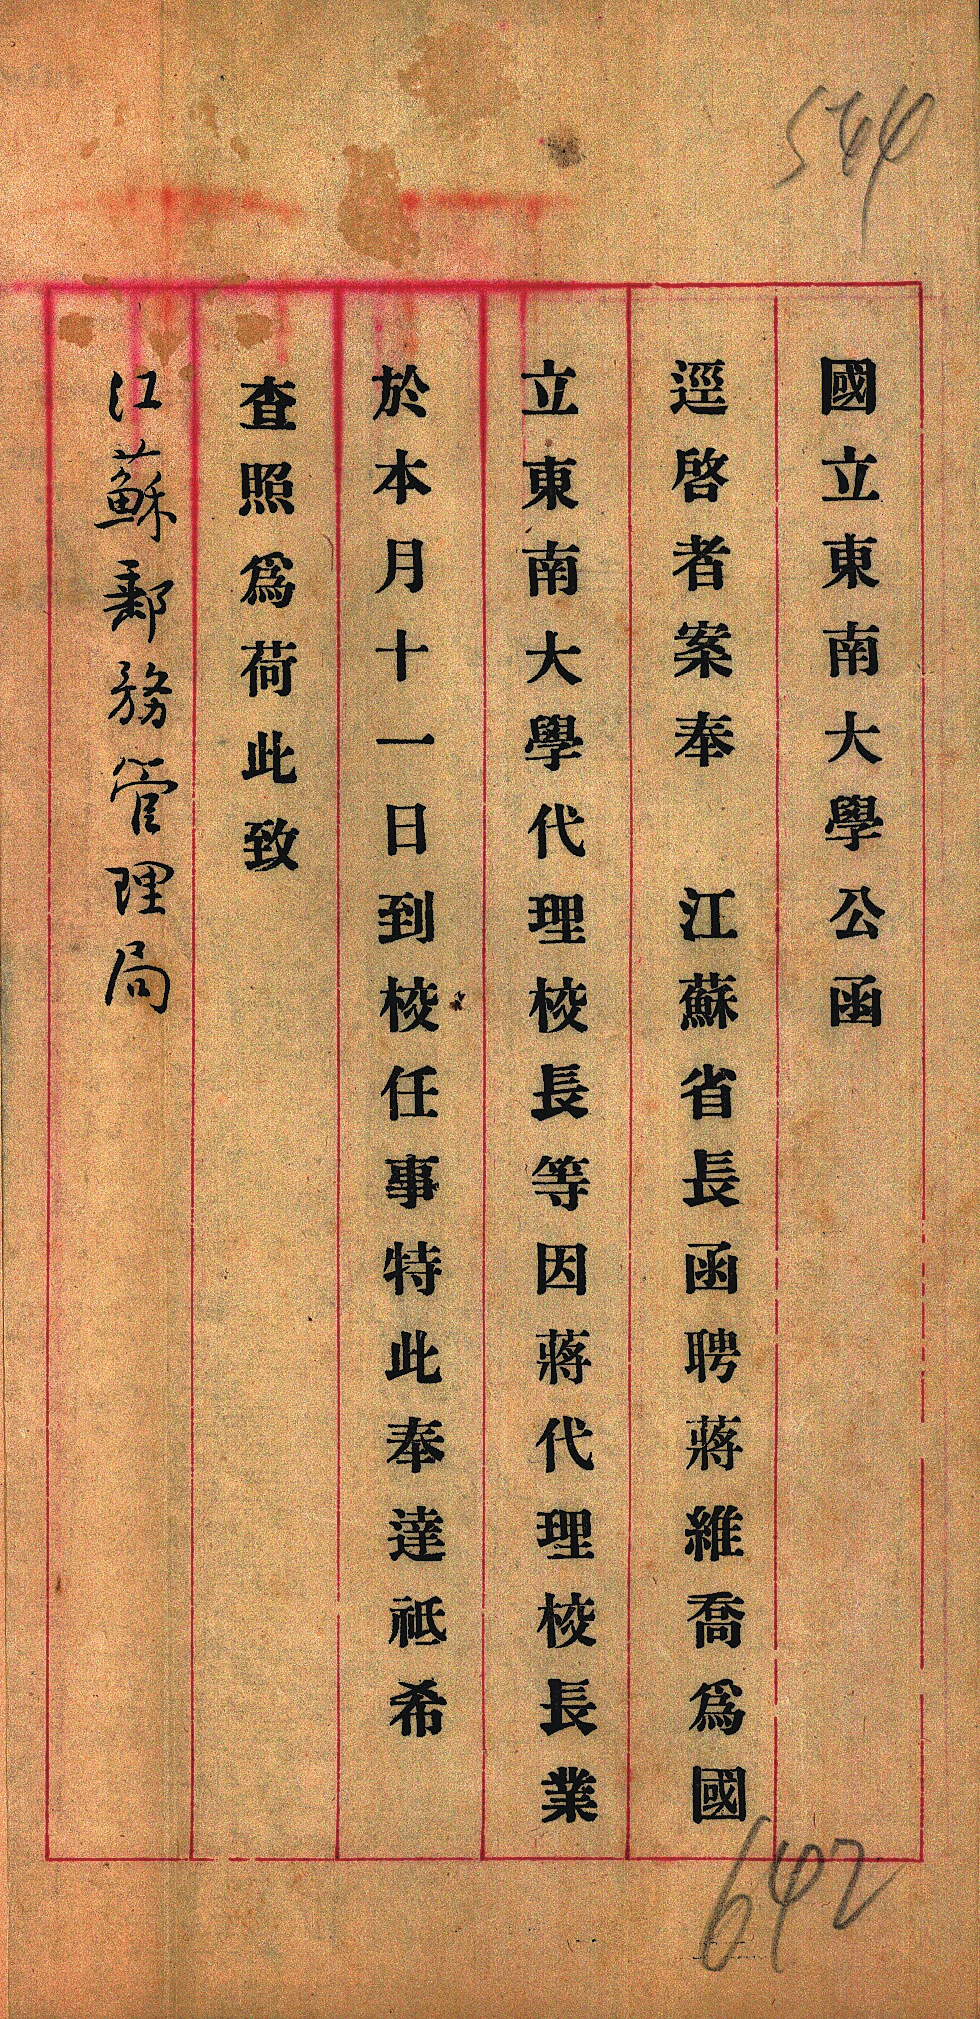 544
國立東南大學公函
逕啓者案奉　江蘇省長函聘蔣維喬爲國
立東南大學代理校長等因蔣代理校長業
於本月十一日到校任事特此奉達祗希
查照爲荷此致
江蘇郵務管理局
642